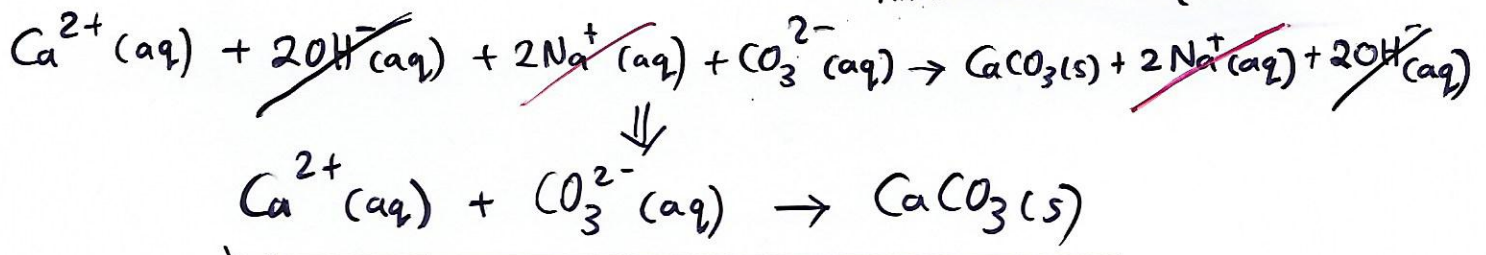 Ca²⁺ (aq) + 2OH⁻ (aq) + 2Na⁺ (aq) + CO₃²⁻ (aq) → CaCO₃(s) + 2Na⁺ (aq) + 2OH⁻ (aq)
⇓
Ca²⁺ (aq) + CO₃²⁻ (aq) → CaCO₃(s)